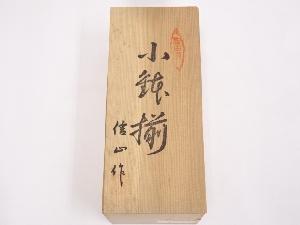 小鉢揃
信山作